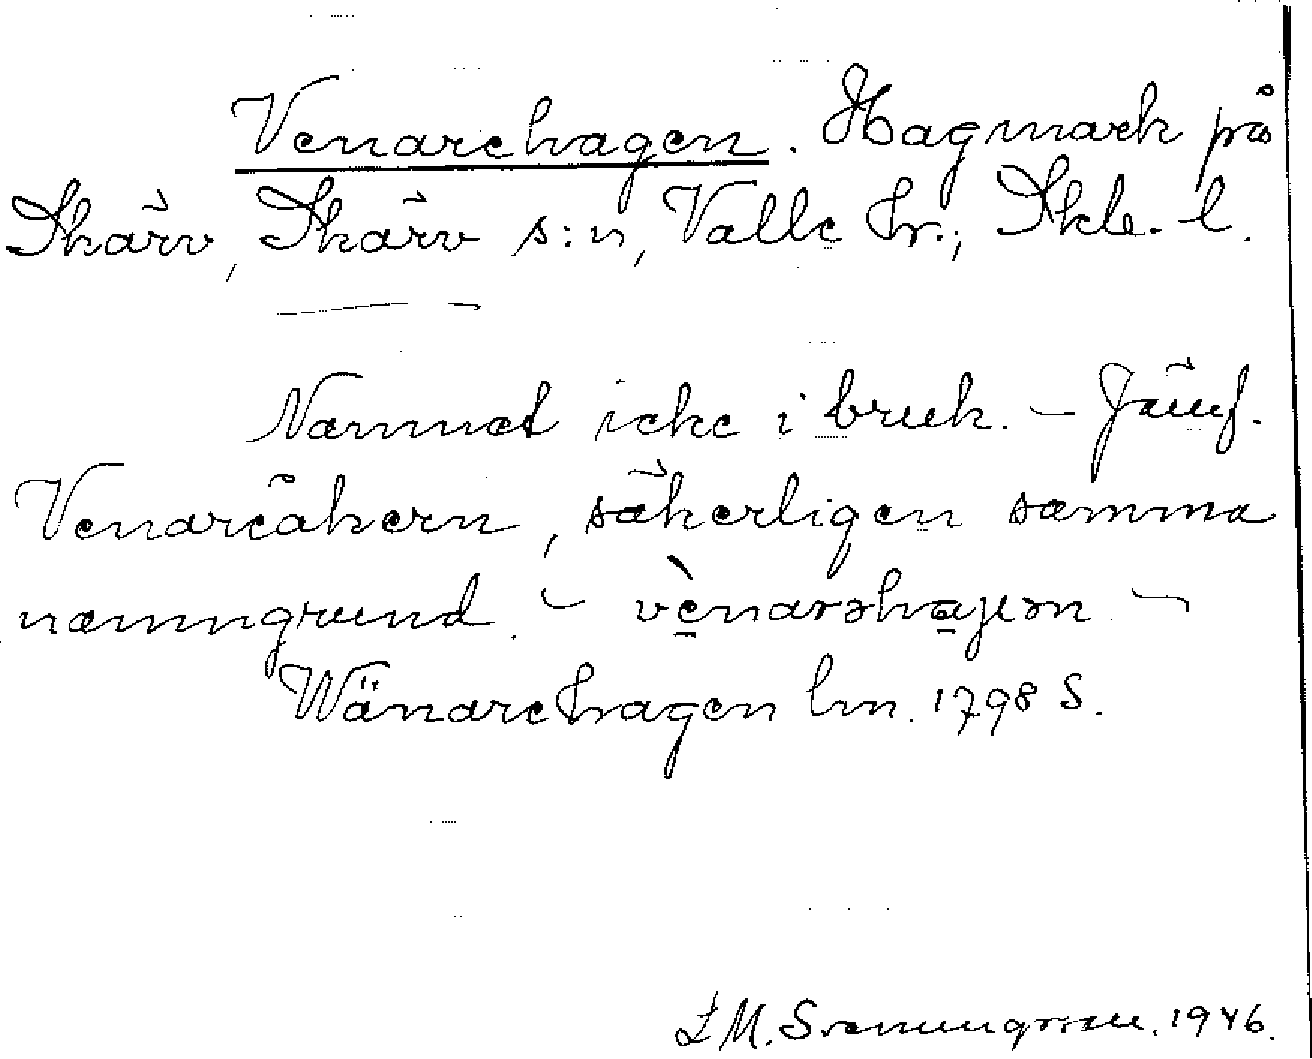 Venarehagen. Hagmark på
Skärv, Skärv s:n, Valle hr., Skb. l.
Namnet icke i bruk. – Jämf.
Venareåkern, säkerligen samma
namngrund. – vènarəhagən –
Wänarehagen lm. 1798 S.
L M. Svenungsson. 1946.